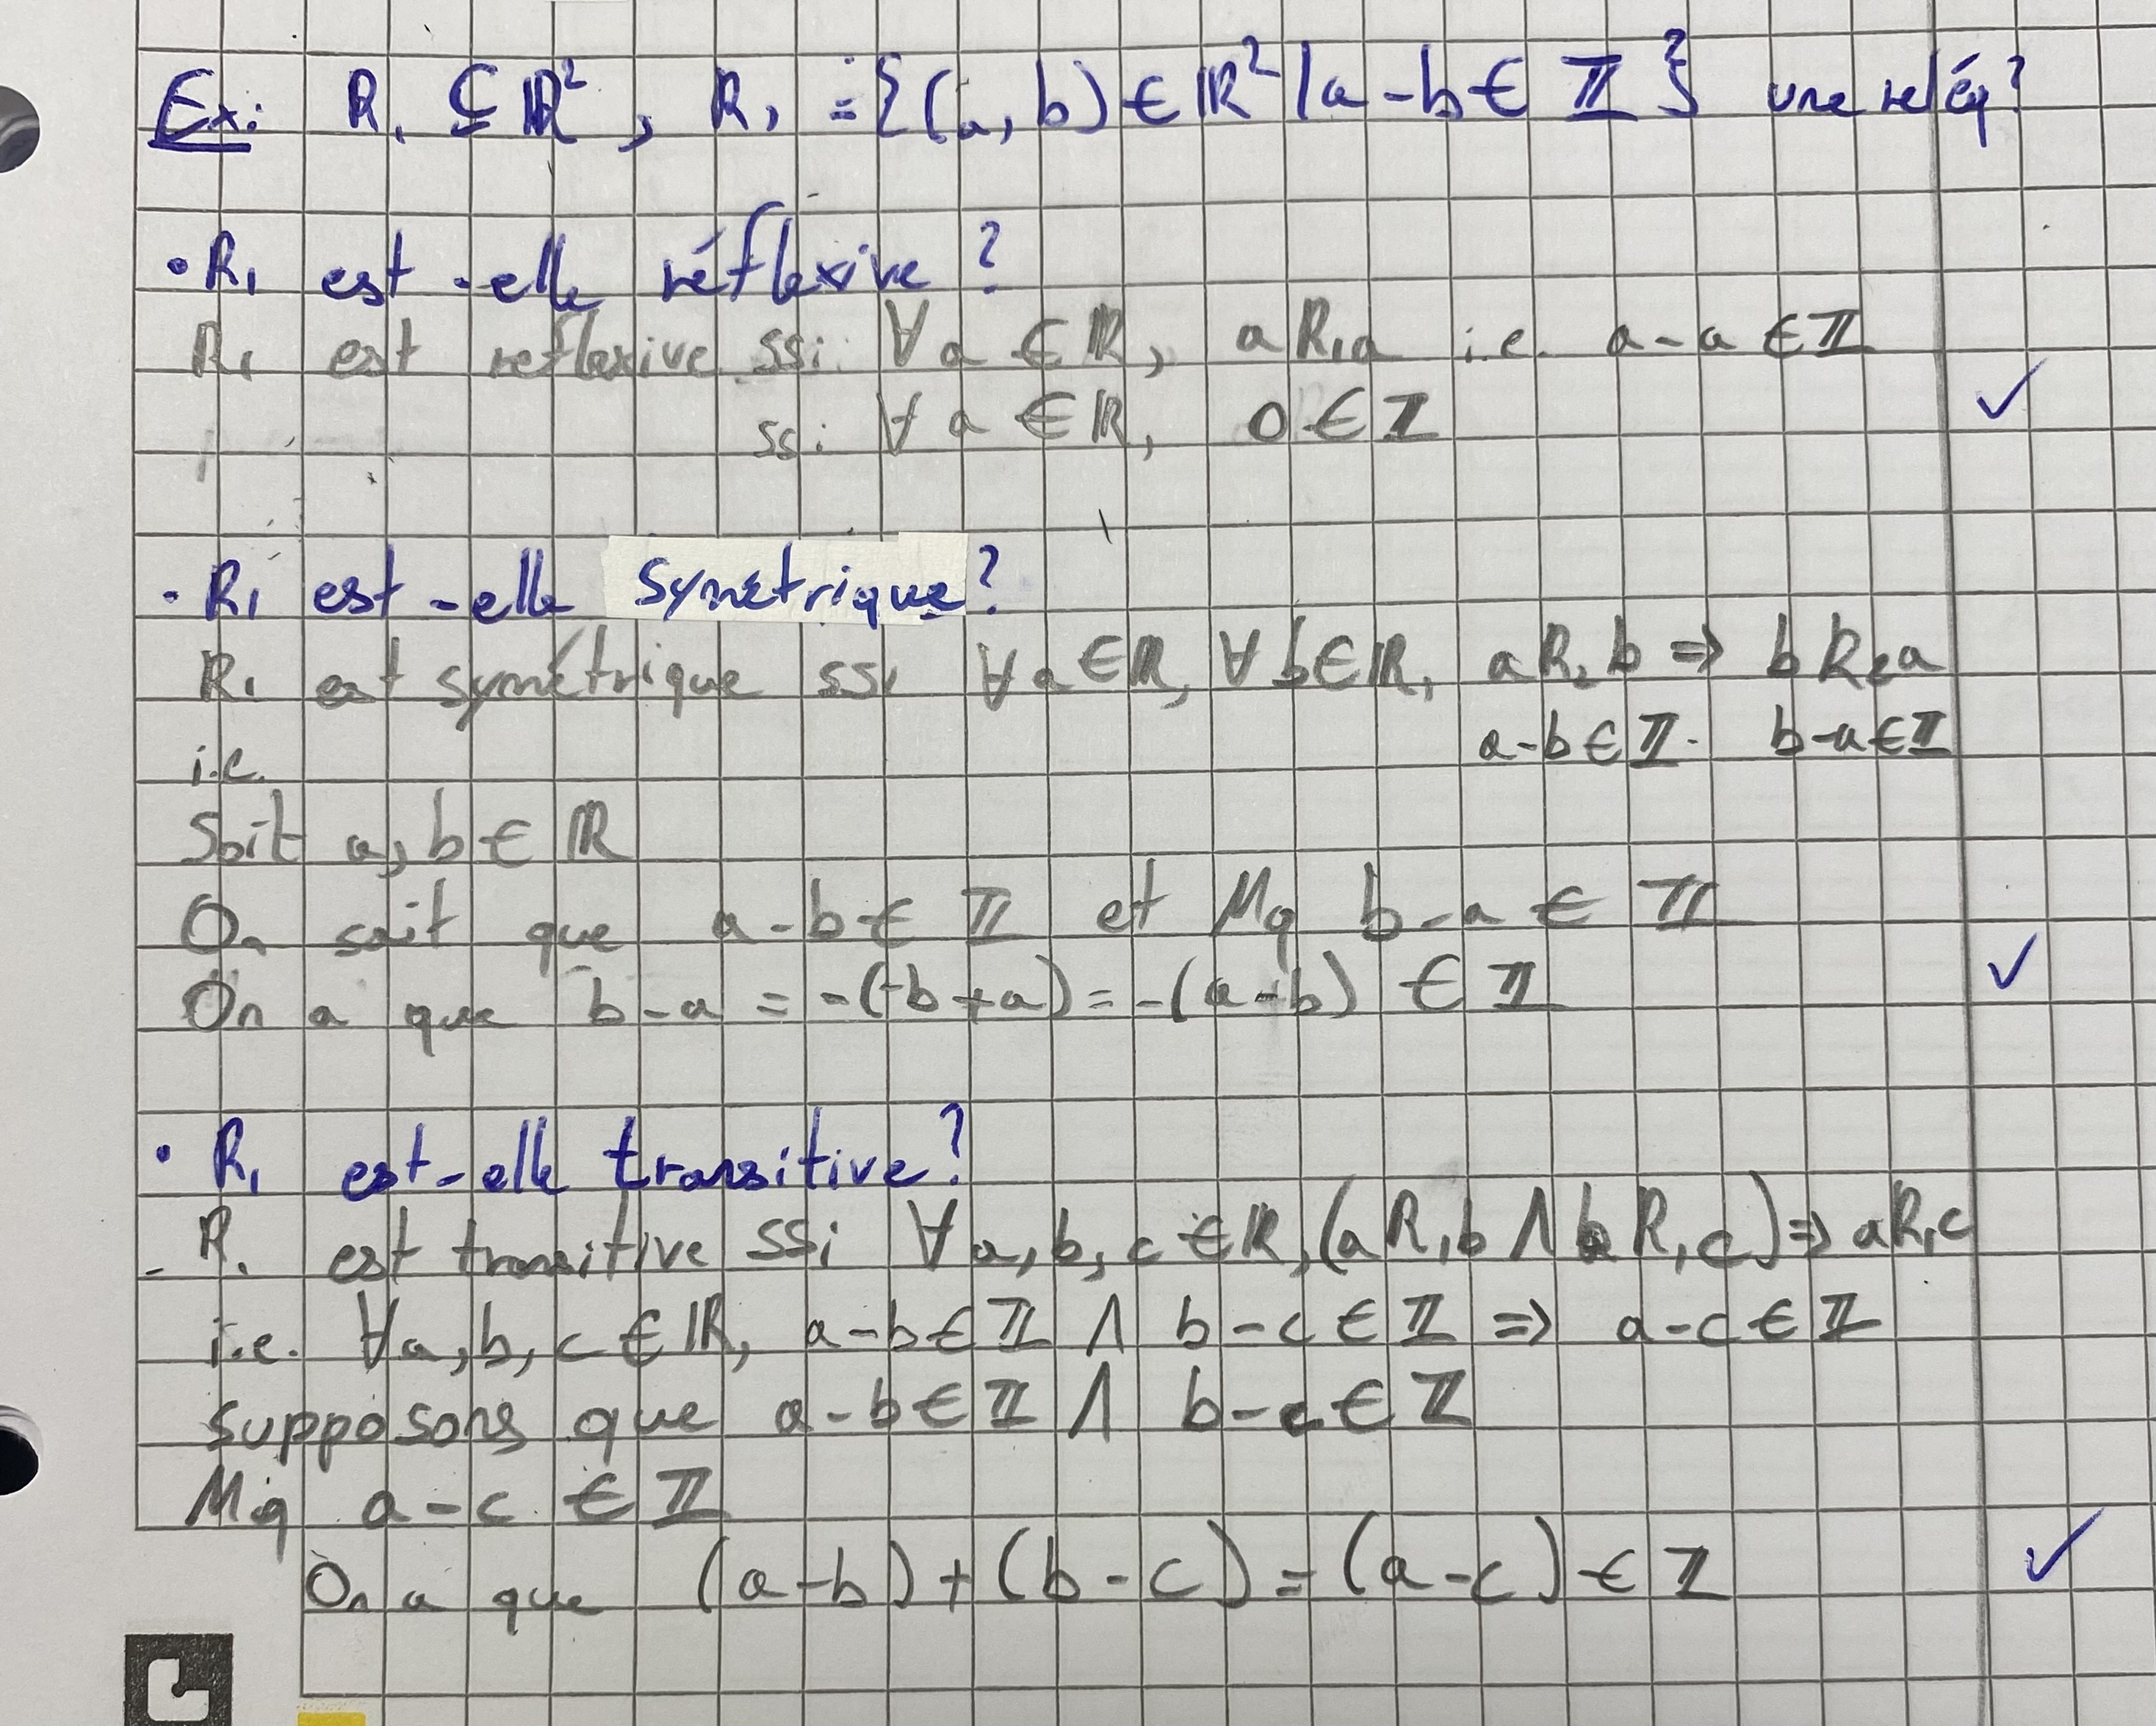 Ex: R₁ ⊆ ℝ², R₁ = {(a, b) ∈ ℝ² | a - b ∈ ℤ} une rel éq?
• R₁ est-elle réflexive?
R₁ est reflexive ssi ∀a ∈ ℝ, a R₁ a i.e. a - a ∈ ℤ
ssi ∀a ∈ ℝ, 0 ∈ ℤ ✓
• R₁ est-elle Symétrique?
R₁ est symétrique ssi ∀a ∈ ℝ, ∀b ∈ ℝ, a R₂ b ⇒ b R₂ a
i.e. a-b ∈ ℤ. b-a ∈ ℤ
Soit a, b ∈ ℝ
On sait que a - b ∈ ℤ et Mq b - a ∈ ℤ
On a que b - a = -(-b + a) = -(a - b) ∈ ℤ ✓
• R₁ est-elle transitive?
- R₁ est transitive ssi ∀a, b, c ∈ ℝ, (a R₁ b ∧ b R₁ c) ⇒ a R₁ c
i.e. ∀a, b, c ∈ ℝ, a - b ∈ ℤ ∧ b - c ∈ ℤ ⇒ a - c ∈ ℤ
supposons que a - b ∈ ℤ ∧ b - c ∈ ℤ
Mq a - c ∈ ℤ
On a que (a - b) + (b - c) = (a - c) ∈ ℤ ✓